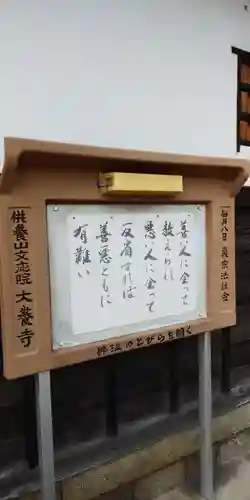 毎月八日 真宗法話会
善い人に会って
教えられ
悪い人に会って
反省すれば
善悪ともに
有難い
供養山文応院 大養寺
押法のとびらを開く